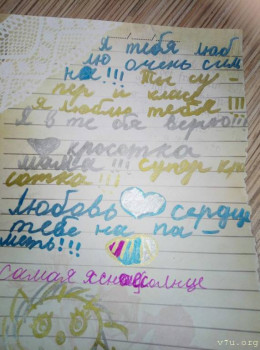 Я тебя люб
лю очень сим
но!!! Ты су-
пер и класс
я люблю тебя!!!
Я в те бя верю!!!
красотка
мама!!! супер кра
сотка!!!
Любовь сердце
тебе на па-
меть!!!
самая ясна солнце
v7u.org